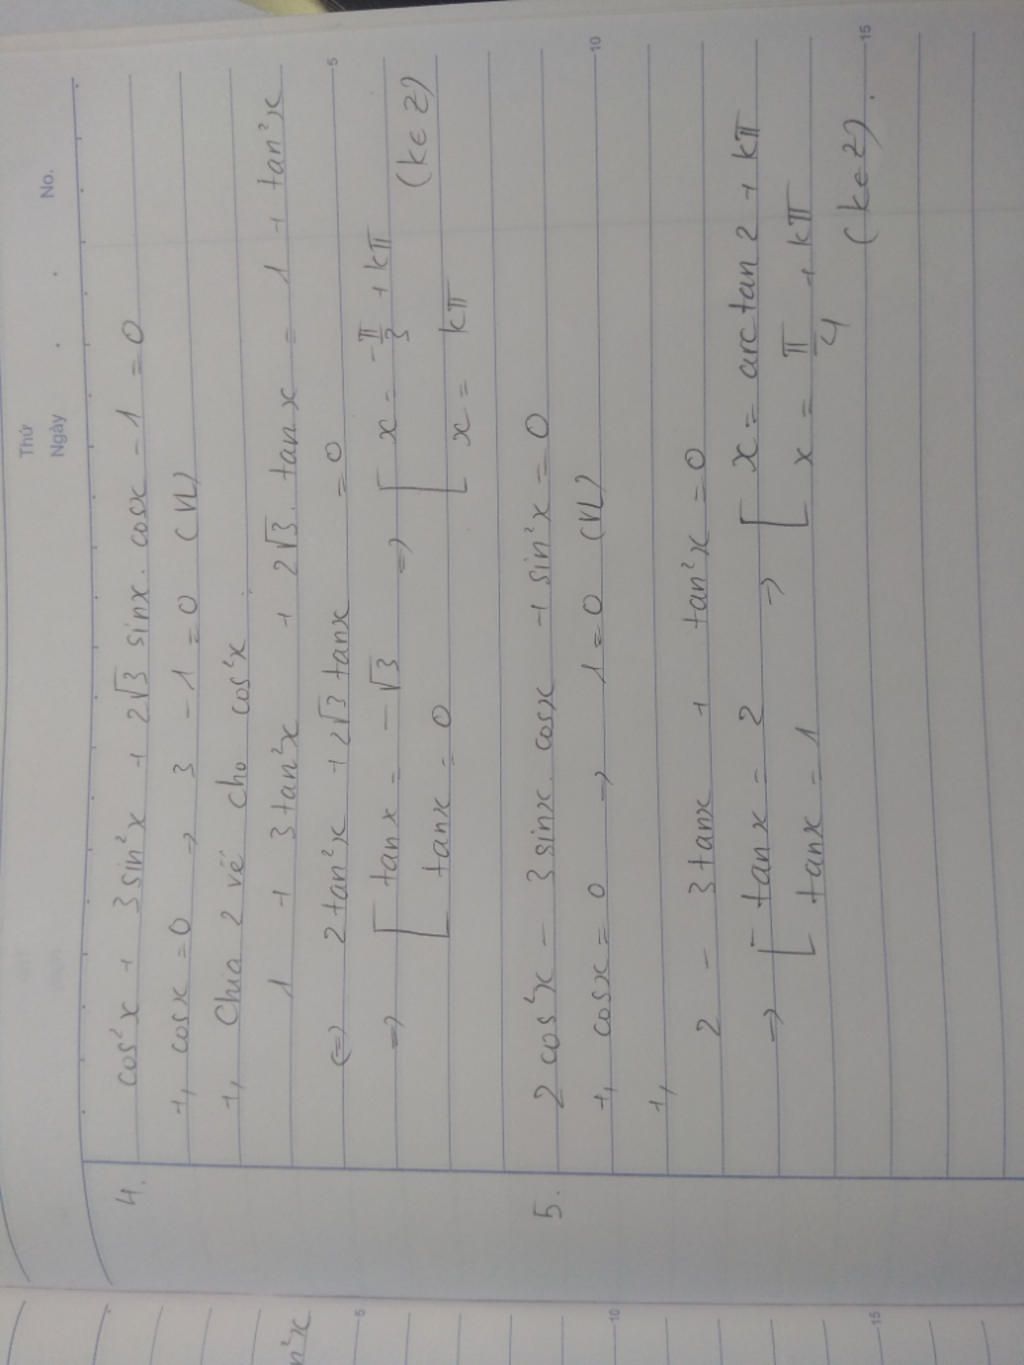 Thứ
Ngày . . No.
4. cos²x + 3sin²x + 2√3 sinx. cosx - 1 = 0
+, cosx = 0 → 3 - 1 = 0 (VL)
+, Chia 2 vế cho cos²x
1 + 3tan²x + 2√3. tanx = 1 + tan²x
5
⇔ 2tan²x + 2√3 tanx = 0
⇒ [ tanx = -√3 ⇒ [ x = -π/3 + kπ
[ tanx = 0 [ x = kπ (k∈Z)
5. 2cos²x - 3sinx. cosx + sin²x = 0
10
+, cosx = 0 → 1 = 0 (VL)
+,
2 - 3tanx + tan²x = 0
→ [ tanx = 2 → [ x = arctan2 + kπ
[ tanx = 1 [ x = π/4 + kπ
15
(k∈Z).
n²x
5
10
15